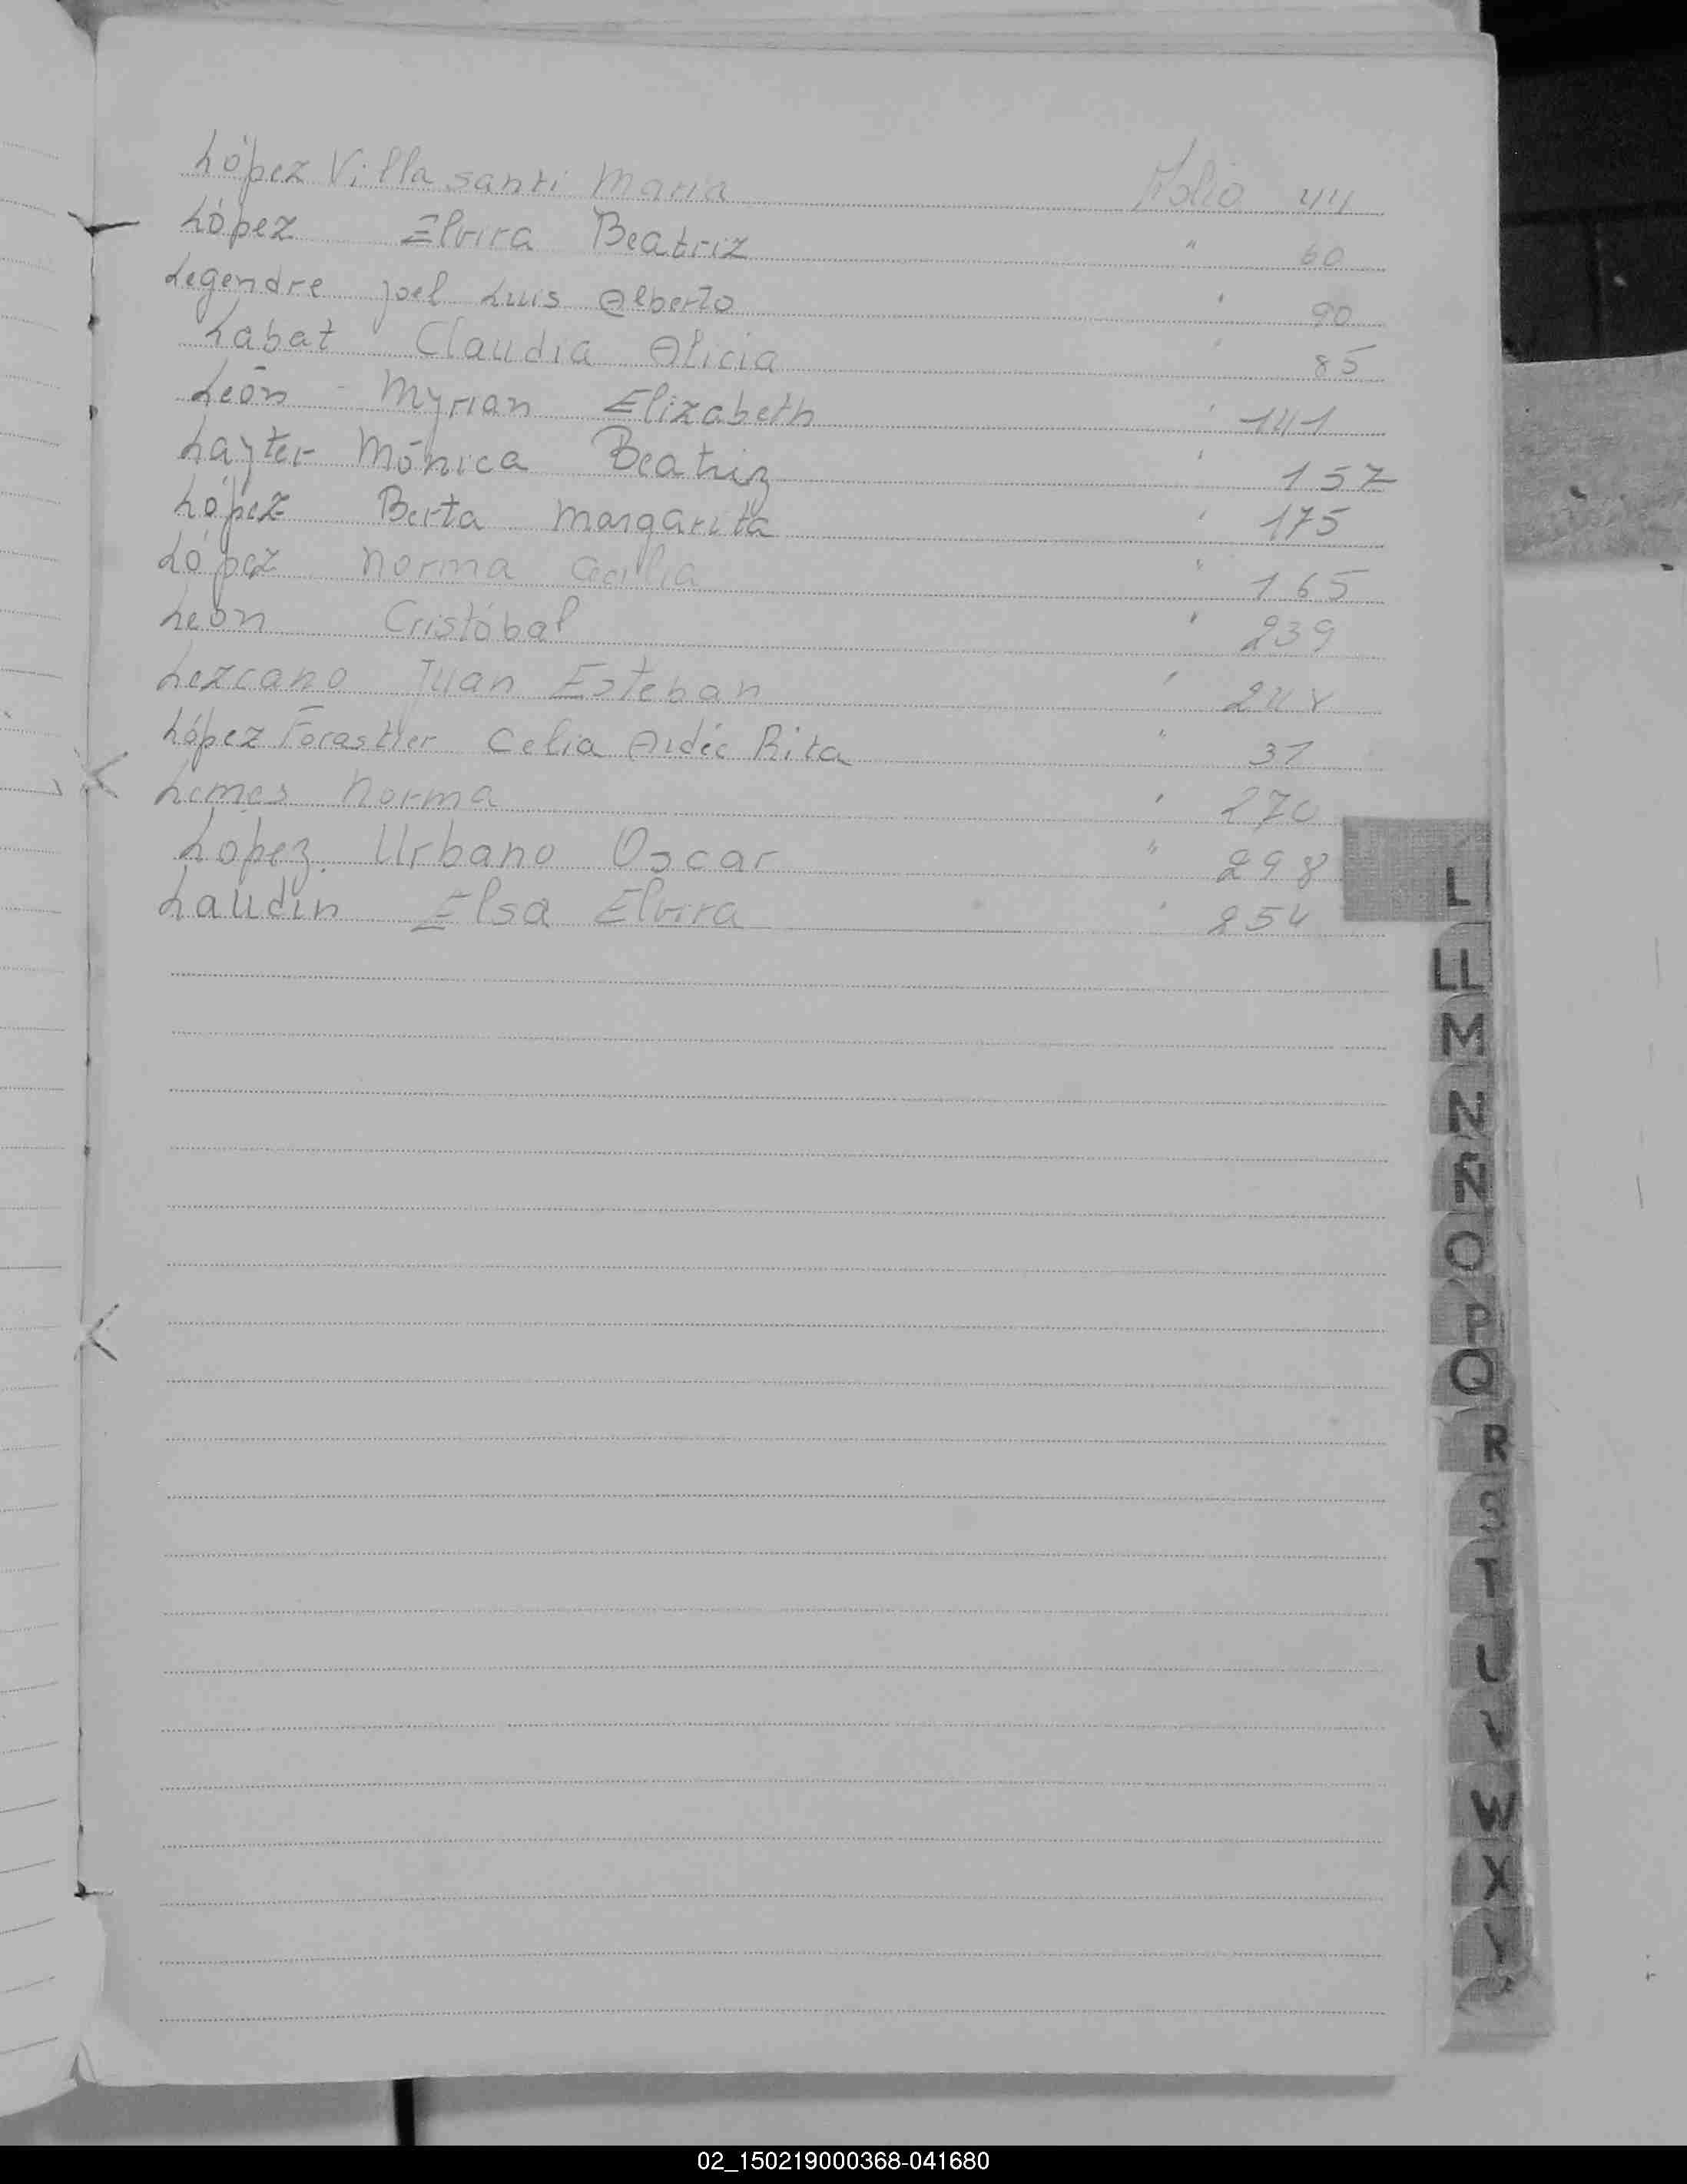 López Villasanti Maria Folio 44
López Elvira Beatriz " 60
Legendre Joel Luis Alberto " 90
Labat Claudia Alicia " 85
León - Myrian Elizabeth " 141
Layter Mónica Beatriz " 157
López Berta Margarita " 175
López Norma Cecilia " 165
León Cristóbal " 239
Lezcano Juan Esteban "
López Forastier Celia Aidée Rita " 31
Lemes Norma " 270
López Urbano Oscar " 298
Laudin Elsa Elvira " 254
L
LL
M
N
Ñ
O
P
Q
R
S
T
U
V
W
X
Y
02_150219000368-041680